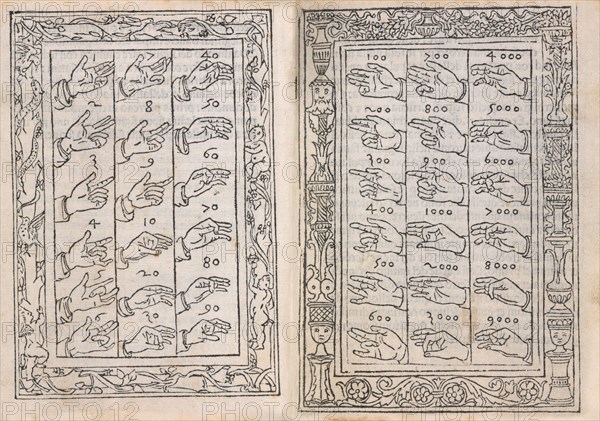 40
2 8 50
3 9 60
4 10 70
20 80
30 90
100 700 4000
200 800 5000
300 900 6000
400 1000 7000
500 2000 8000
600 3000 9000
PHOTO12